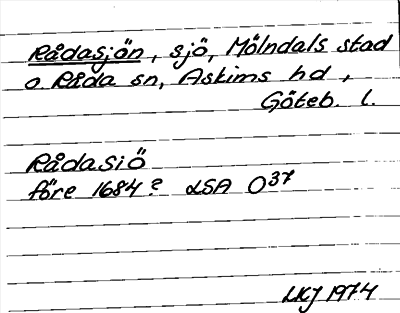 Rådasjön, sjö, Mölndals stad
o Råda sn, Askims hd,
Göteb. l.
Rådasiö
före 1684? LSA O37
LKJ 1974